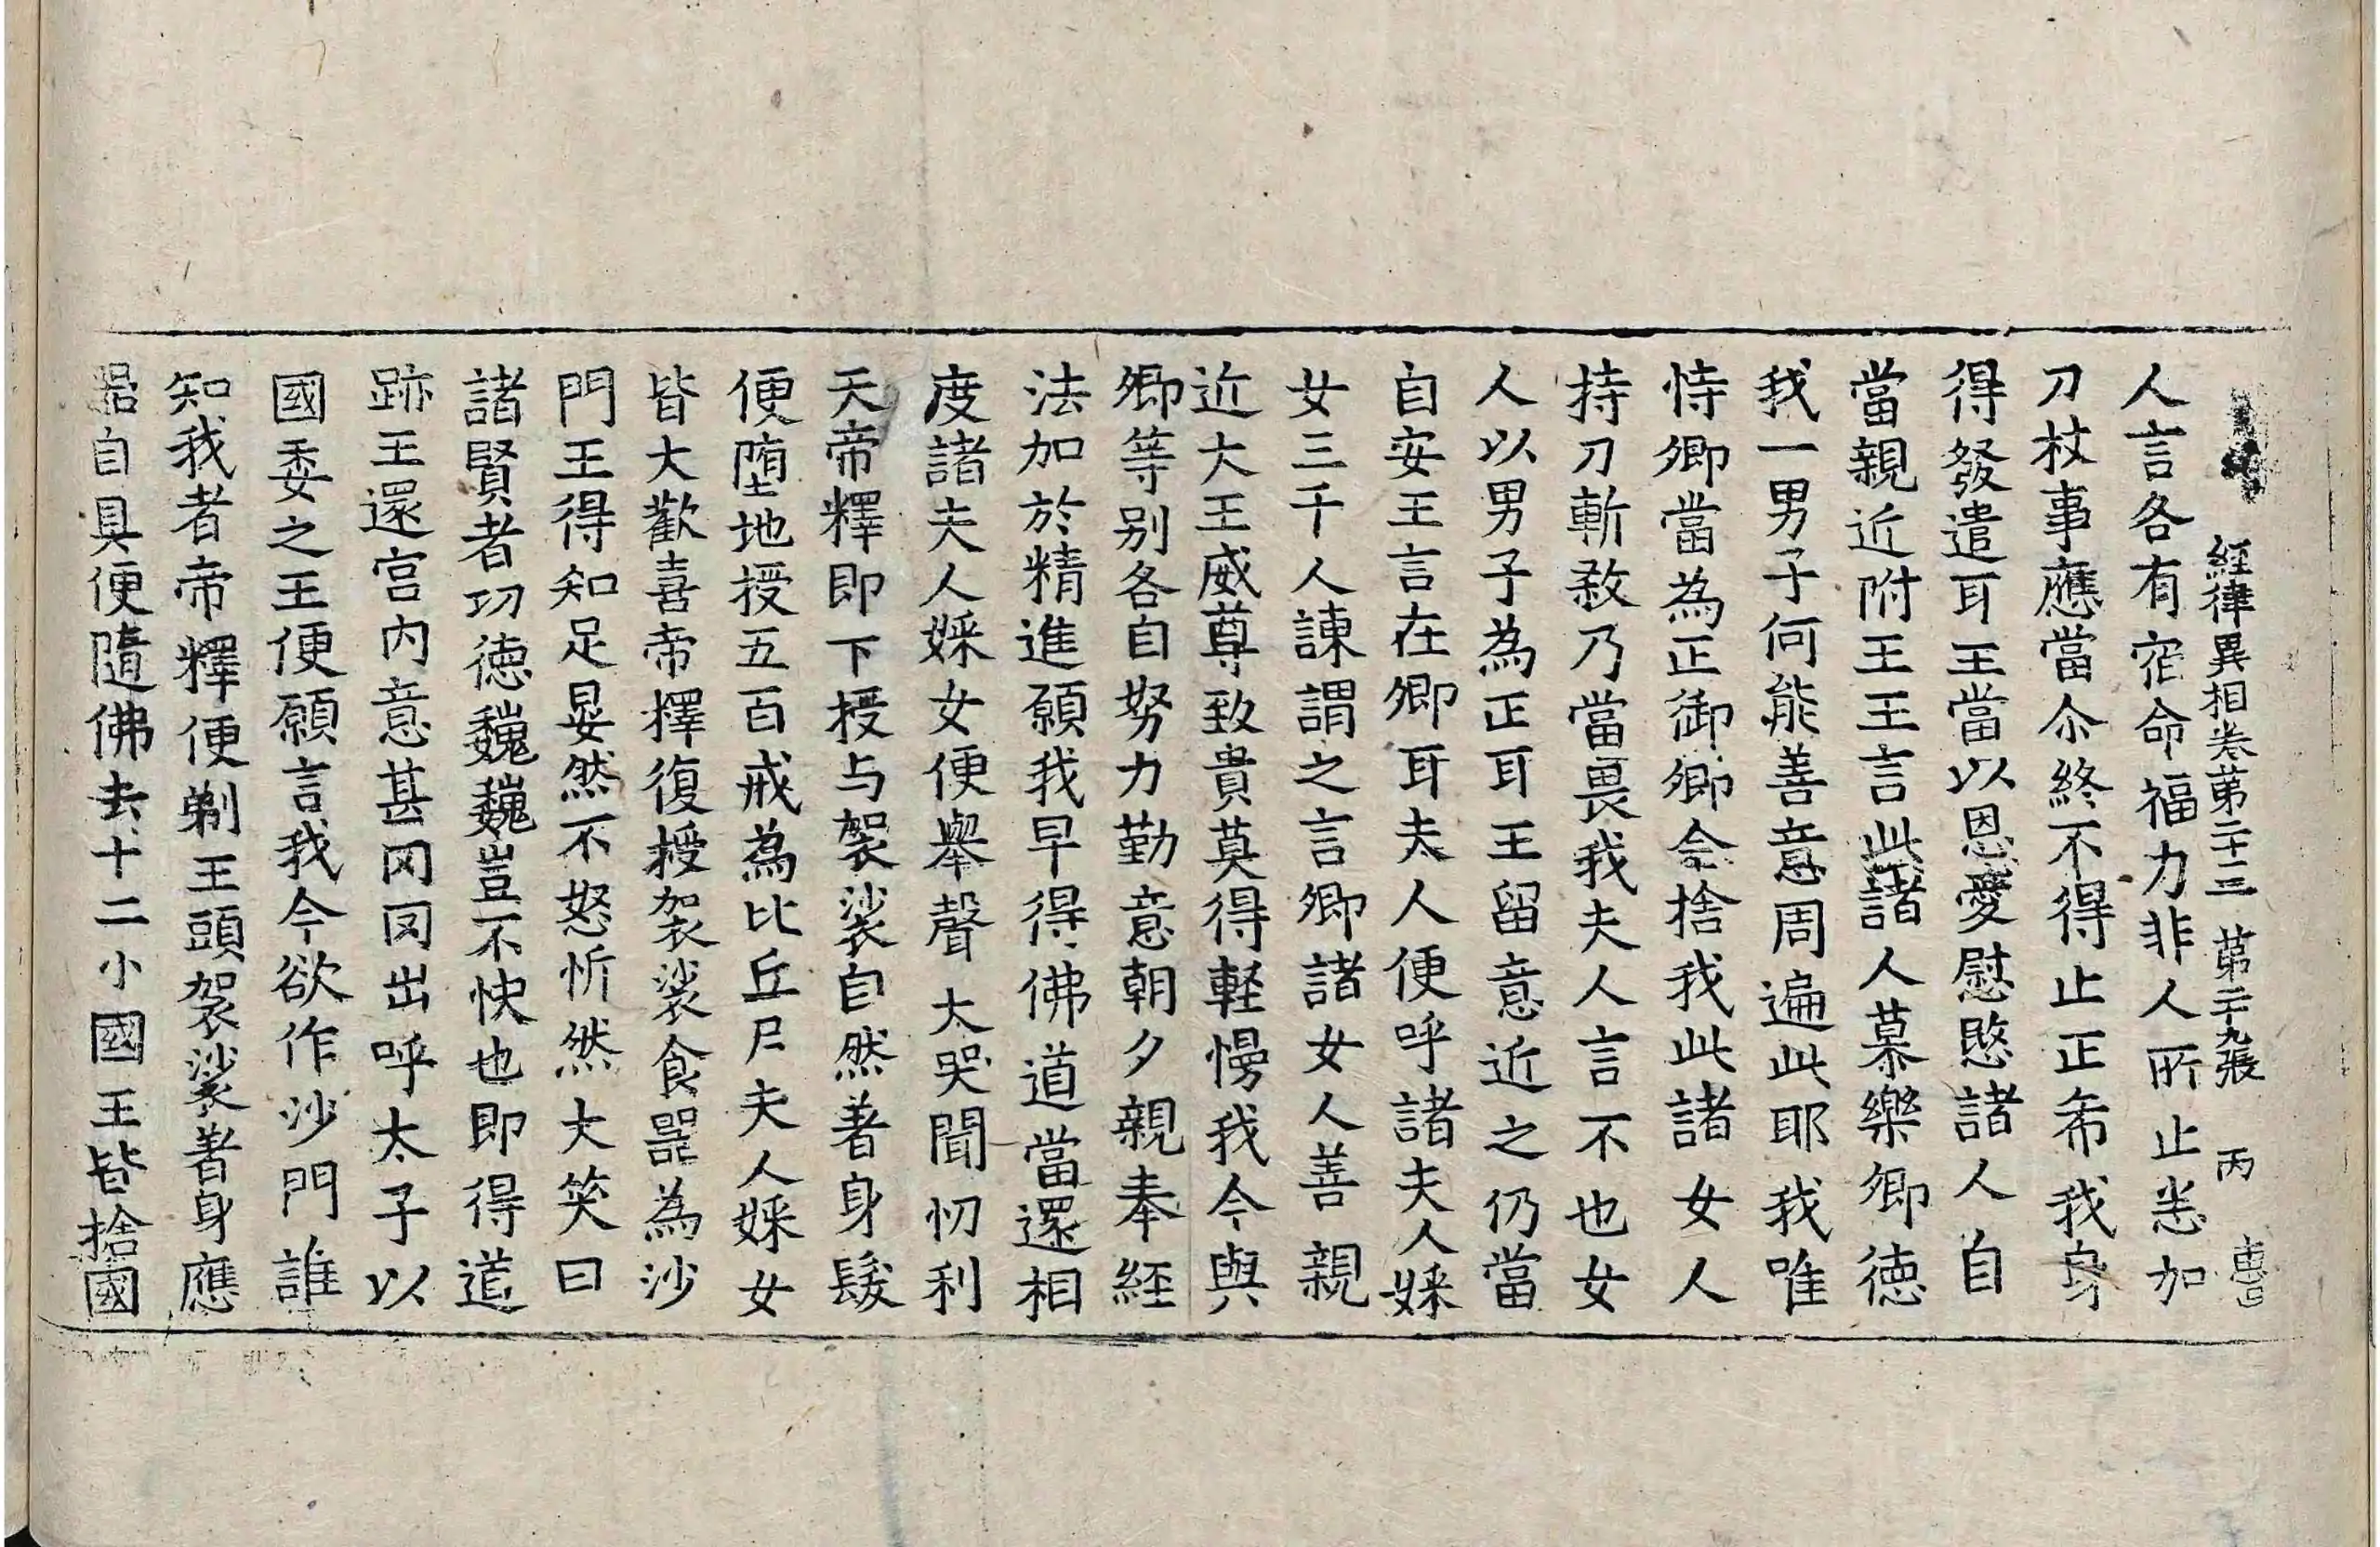 經律異相卷苐二十三　苐二十九張　丙
人言各有宿命福力非人所止恙加
刀杖事應當尒終不得止正希我身
得發遣耳王當以恩愛慰愍諸人自
當親近附王王言此諸人慕樂卿徳
我一男子何能善意周遍此耶我唯
恃卿當為正御卿今捨我此諸女人
持刀斬敎乃當畏我夫人言不也女
人以男子為正耳王留意近之仍當
自安王言在卿耳夫人便呼諸夫人婇
女三千人諫謂之言卿諸女人善親
近大王威尊致貴莫得軽慢我今與
卿等別各自努力勤意朝夕親奉経
法加於精進願我早得佛道當還相
度諸夫人婇女便舉聲大哭聞忉利
天帝釋即下授与袈裟自然著身髮
便堕地授五百戒為比丘尼夫人婇女
皆大歡喜帝釋復授袈裟食器為沙
門王得知足晏然不怒忻然大笑曰
諸賢者功徳巍巍豈不快也即得道
跡王還宮内意甚罔罔出呼太子以
國委之王便願言我今欲作沙門誰
知我者帝釋便剃王頭袈裟著身應
器自具便隨佛去十二小國王皆捨國